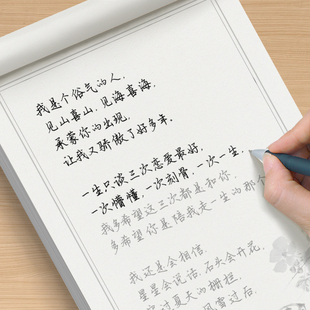 我是个俗气的人，
见山喜山，见海喜海，
承蒙你的出现，
让我又骄傲了好多年，
一生只谈三次恋爱最好，
一次懵懂，一次刻骨，一次一生，
我多希望这三次都是和你，
多希望你是陪我走一生的那个
我还是会相信，
星星会说话，石头会开花，
穿过夏天的栅栏，
风雪过后，